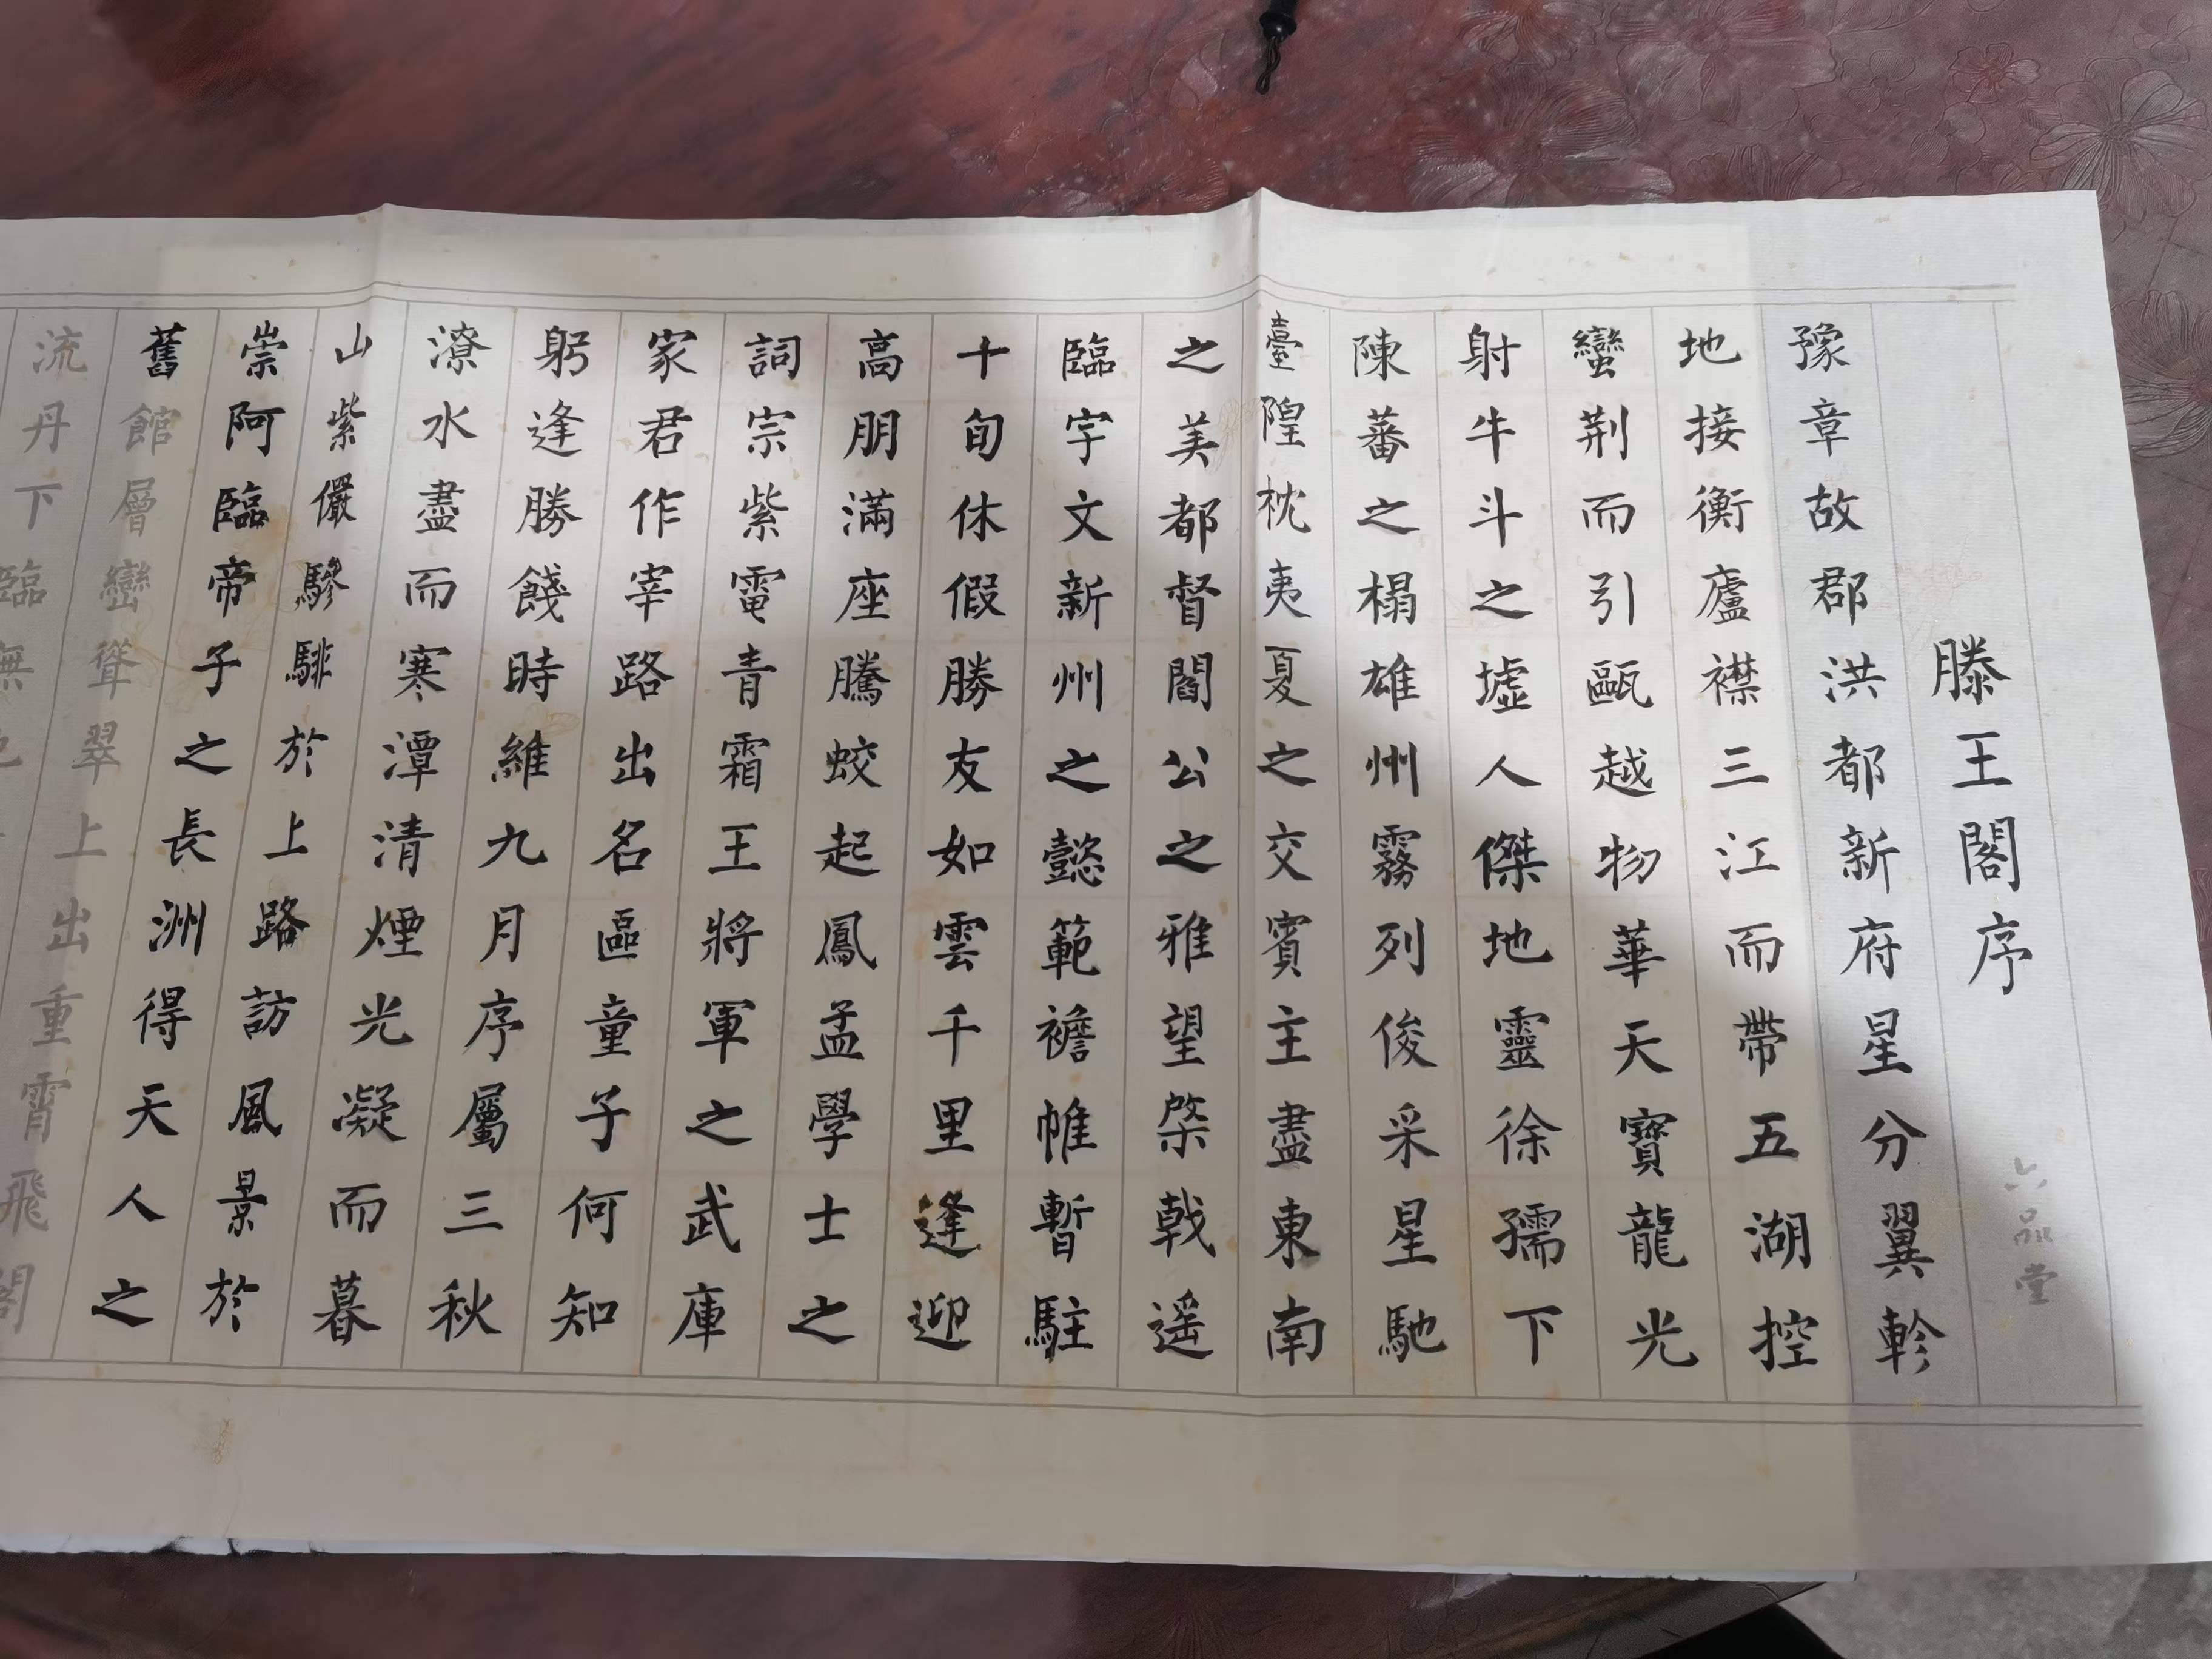 滕王閣序
六品堂
豫章故郡洪都新府星分翼軫
地接衡廬襟三江而帶五湖控
蠻荆而引甌越物華天寶龍光
射牛斗之墟人傑地靈徐孺下
陳蕃之榻雄州霧列俊采星馳
臺隍枕夷夏之交賓主盡東南
之美都督閻公之雅望棨戟遥
臨宇文新州之懿範襜帷暫駐
十旬休假勝友如雲千里逢迎
高朋滿座騰蛟起鳳孟學士之
詞宗紫電青霜王將軍之武庫
家君作宰路出名區童子何知
躬逢勝餞時維九月序屬三秋
潦水盡而寒潭清煙光凝而暮
山紫儼驂騑於上路訪風景於
崇阿臨帝子之長洲得天人之
舊館層巒聳翠上出重霄飛閣
流丹下臨無